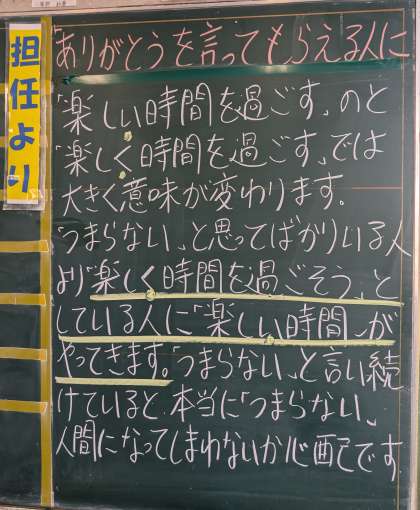 担任より
「ありがとうを言ってもらえる人に
「楽しい時間を過ごす」のと
「楽しく時間を過ごす」では
大きく意味が変わります。
「つまらない」と思ってばかりいる人
より「楽しく時間を過ごそう」と
している人に「楽しい時間」が
やってきます。「つまらない」と言い続
けていると、本当に「つまらない」
人間になってしまわないか心配です